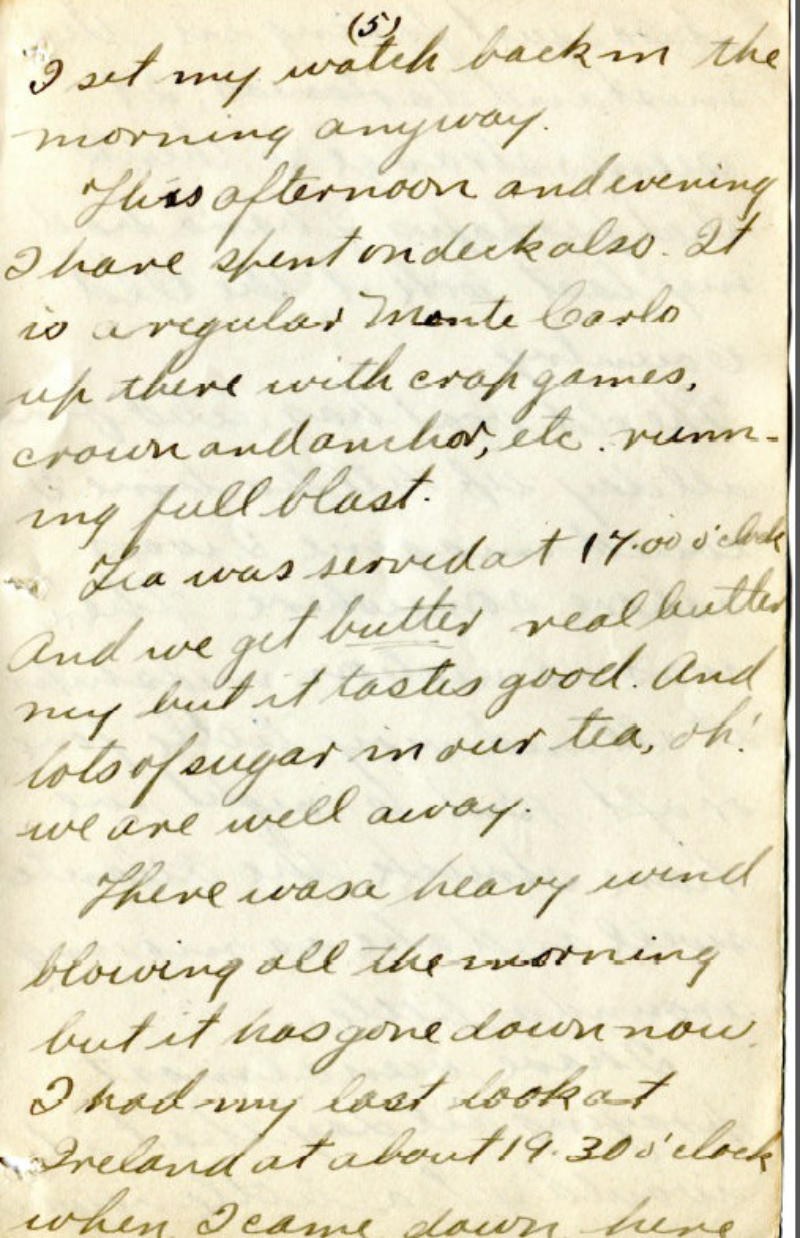 (5)
I set my watch back in the
morning anyway.
This afternoon and evening
I have spent on deck also. It
is a regular Monte Carlo
up there with crap games,
crown and anchor, etc. runn-
ing full blast.
Tea was served at 17.00 o'clock
And we get butter real butter
my but it tastes good. And
lots of sugar in our tea, oh!
we are well away.
There was a heavy wind
blowing all the morning
but it has gone down now.
I had my last look at
Ireland at about 19.30 o'clock
when I came down here